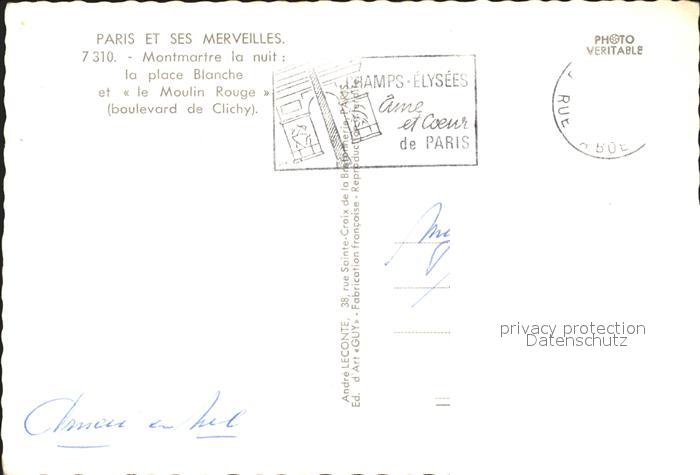 PARIS ET SES MERVEILLES.
7 310. - Montmartre la nuit :
la place Blanche
et « le Moulin Rouge »
(boulevard de Clichy).
PHOTO
VERITABLE
CHAMPS-ÉLYSÉES
âme
et Cœur
de PARIS
RUE
André LECONTE, 38, rue Sainte-Croix de la Bretonnerie, PARIS
Ed. d'Art «GUY» - Fabrication française - Reproduction
privacy protection
Datenschutz